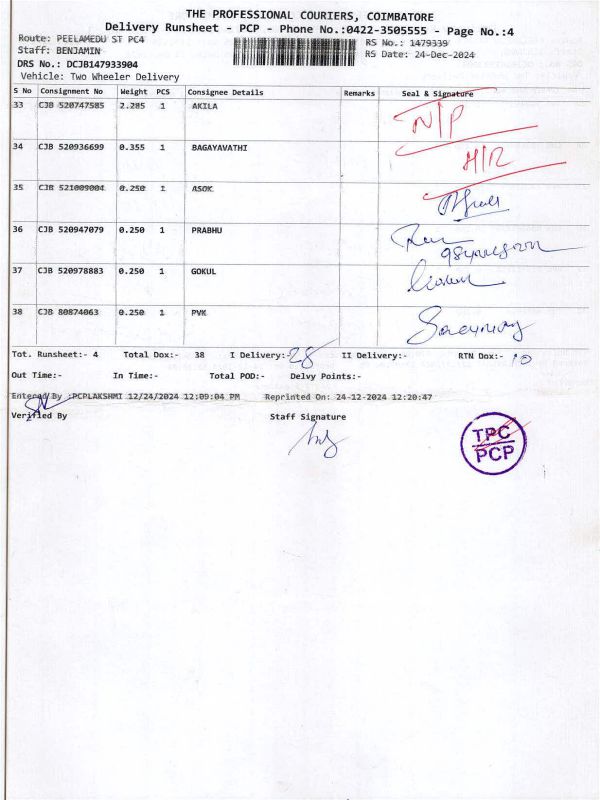 THE PROFESSIONAL COURIERS, COIMBATORE
Delivery Runsheet - PCP - Phone No.:0422-3505555 - Page No.:4
Route: PEELAMEDU ST PC4 RS No.: 1479339
Staff: BENJAMIN RS Date: 24-Dec-2024
DRS No.: DCJB147933904
Vehicle: Two Wheeler Delivery
S No Consignment No Weight PCS Consignee Details Remarks Seal & Signature
33 CJB 520747585 2.285 1 AKILA N/P
34 CJB 520936699 0.355 1 BAGAYAVATHI H/R
35 CJB 521009004 0.250 1 ASOK
36 CJB 520947079 0.250 1 PRABHU
37 CJB 520978883 0.250 1 GOKUL
38 CJB 80874063 0.250 1 PVK
Tot. Runsheet:- 4 Total Dox:- 38 I Delivery:- 28 II Delivery:- RTN Dox:- 10
Out Time:- In Time:- Total POD:- Delvy Points:-
Entered By :PCPLAKSHMI 12/24/2024 12:09:04 PM Reprinted On: 24-12-2024 12:20:47
Verified By Staff Signature
TPC
PCP